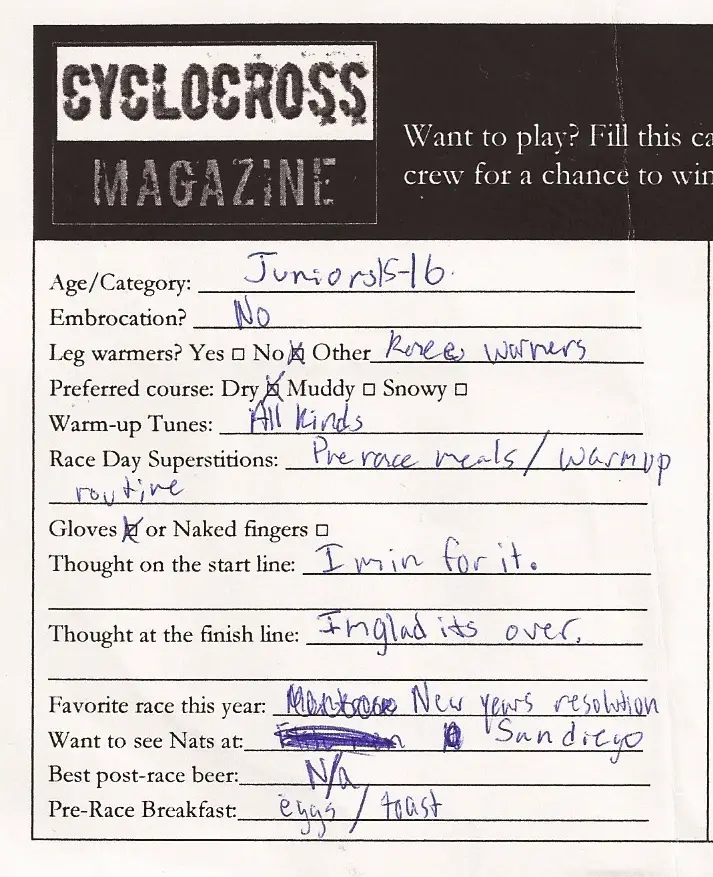 CYCLOCROSS
MAGAZINE
Want to play? Fill this ca
crew for a chance to win
Age/Category: Juniors 15-16.
Embrocation? No
Leg warmers? Yes □ No ☒ Other Knee warmers
Preferred course: Dry ☒ Muddy □ Snowy □
Warm-up Tunes: All kinds
Race Day Superstitions: Pre race meals / warmup
routine
Gloves ☒ or Naked fingers □
Thought on the start line: I'm in for it.
Thought at the finish line: Im glad its over.
Favorite race this year: New years resolution
Want to see Nats at: San diego
Best post-race beer: N/a
Pre-Race Breakfast: eggs / toast